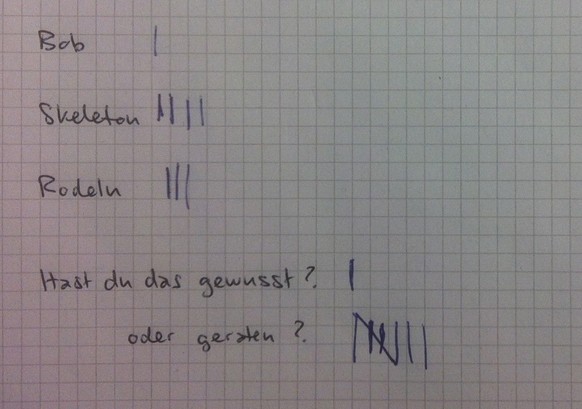 Bob |
Skeleton ||||
Rodeln |||
Hast du das gewusst? |
oder geraten? |||| ||